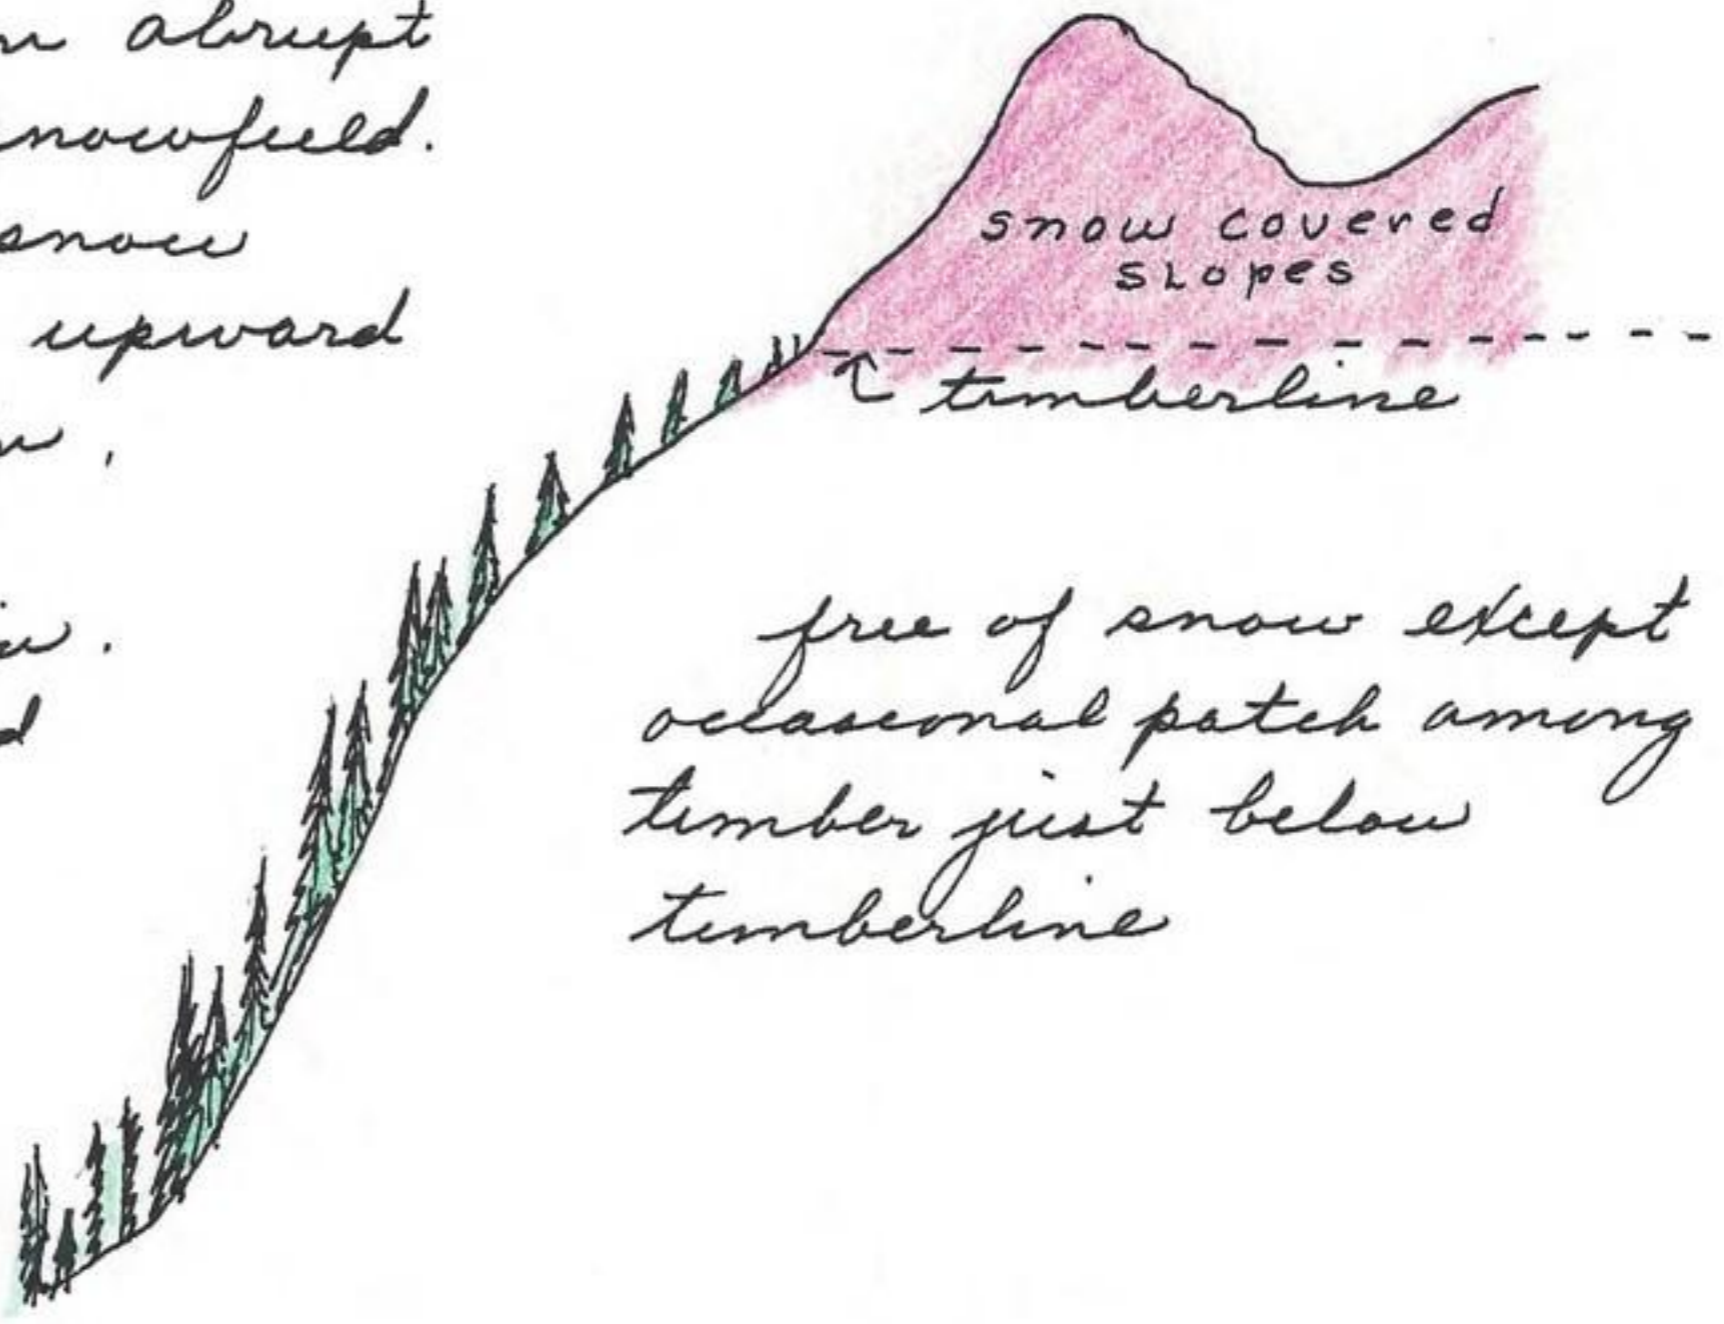 abrupt
snowfield.
snow
upward
snow covered
slopes
timberline
free of snow except
occasional patch among
timber just below
timberline